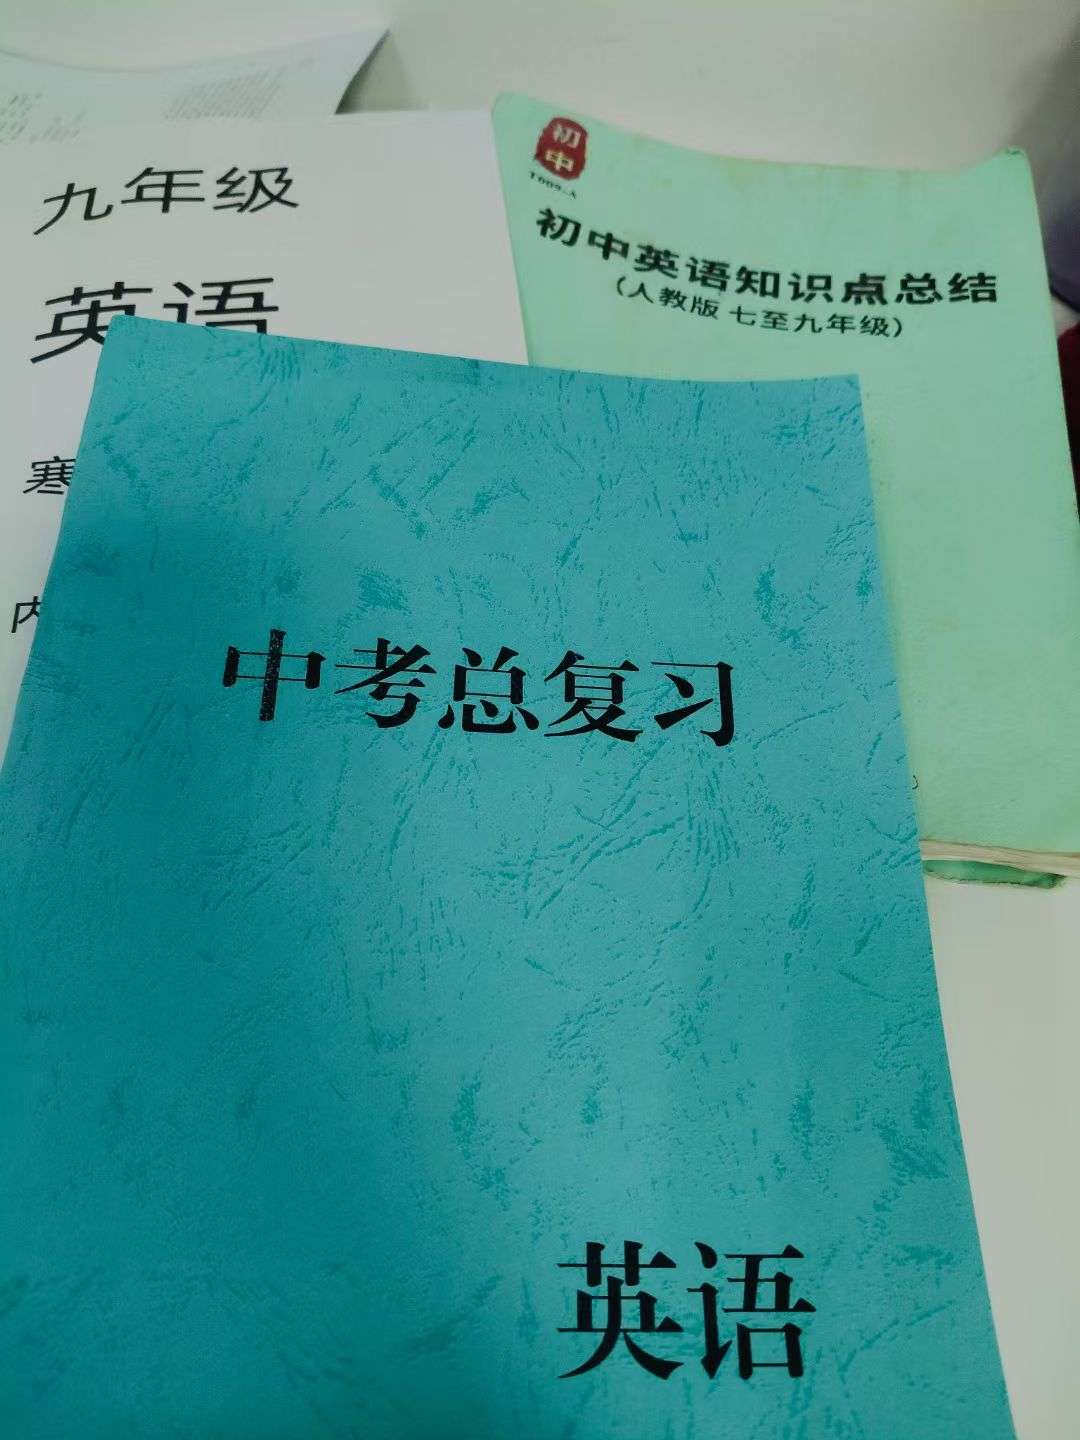 九年级
英语
寒
内
初中
T009-A
初中英语知识点总结
(人教版 七至九年级)
中考总复习
英语